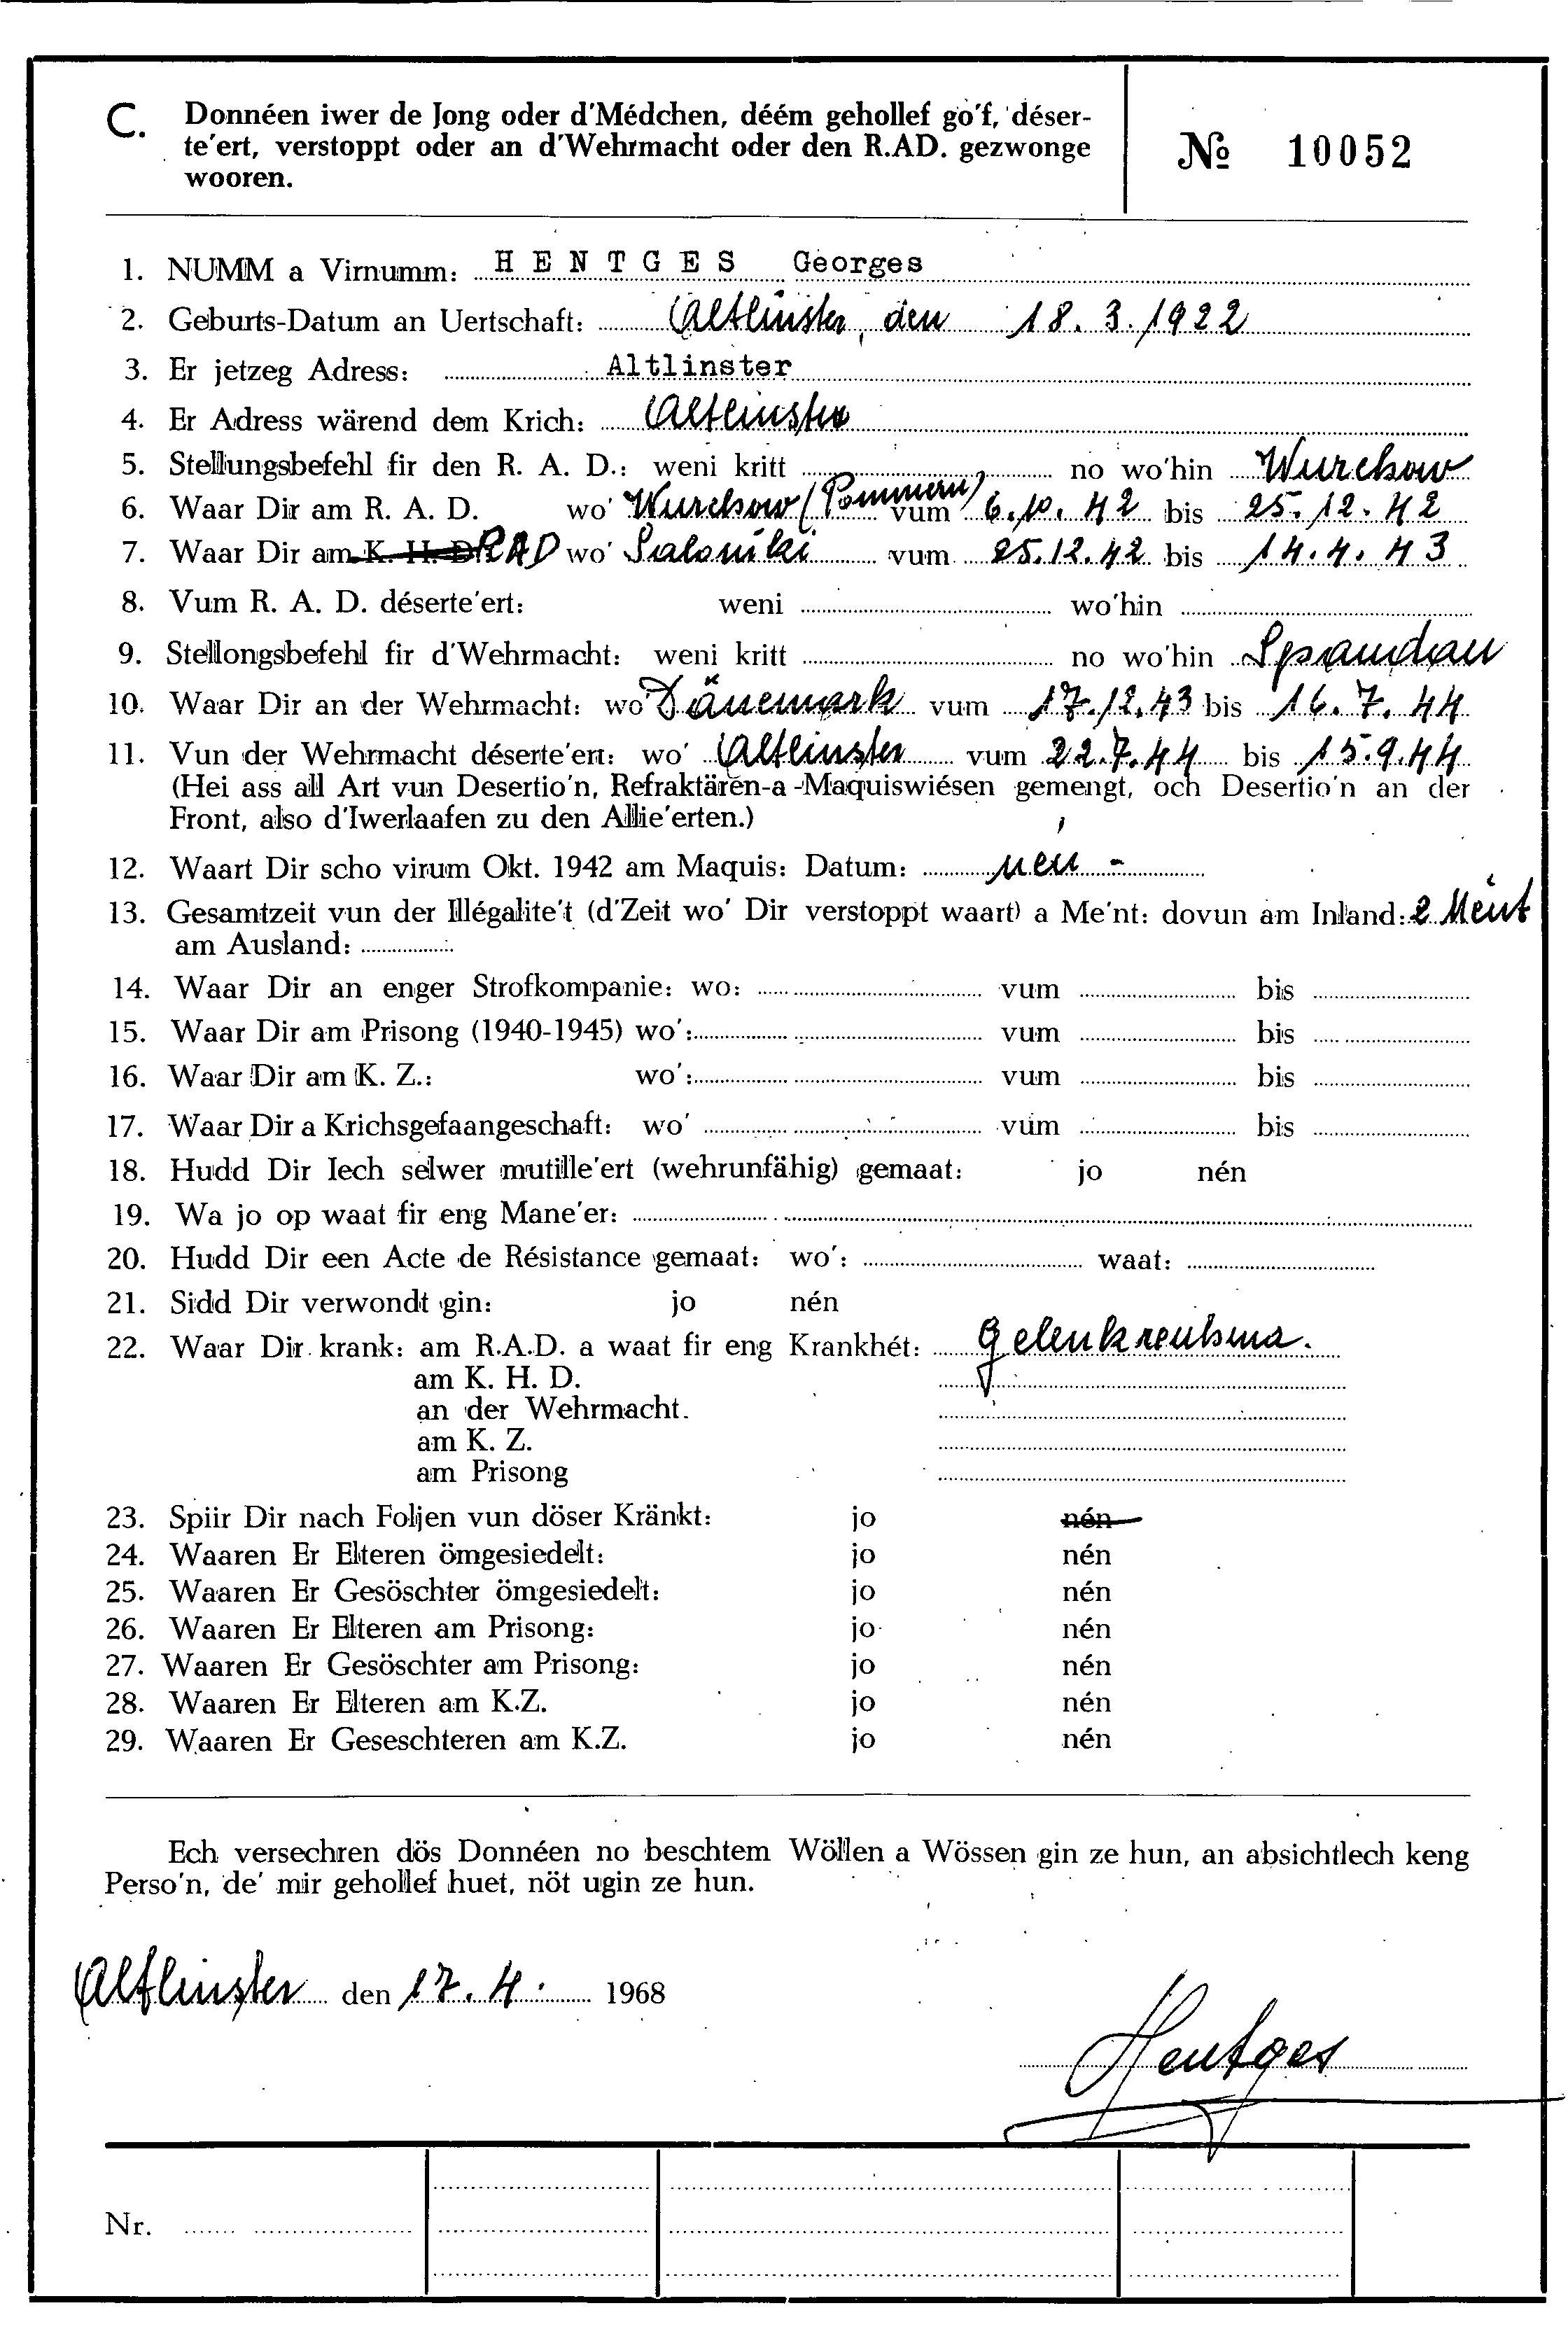 C. Donnéen iwer de Jong oder d'Médchen, déém gehollef go'f, déser-
te'ert, verstoppt oder an d'Wehrmacht oder den R.AD. gezwonge
wooren.
№ 10052
1. NUMM a Virnumm: HENTGES Georges
2. Geburts-Datum an Uertschaft: Altlinster, den 18.3.1922
3. Er jetzeg Adress: Altlinster
4. Er Adress wärend dem Krich: Altlinster
5. Stellungsbefehl fir den R. A. D.: weni kritt no wo'hin Wurchow
6. Waar Dir am R. A. D. wo' Wurchow (Pommern) vum 6.10.42 bis 25.12.42
7. Waar Dir am K. H. D. RAD wo' Saloniki vum 25.12.42 bis 14.4.43
8. Vum R. A. D. déserte'ert: weni wo'hin
9. Stellongsbefehl fir d'Wehrmacht: weni kritt no wo'hin Spandau
10. Waar Dir an der Wehrmacht: wo Dänemark vum 17.12.43 bis 16.7.44
11. Vun der Wehrmacht déserte'ert: wo' Altlinster vum 22.7.44 bis 15.9.44
(Hei ass all Art vun Desertio'n, Refraktären-a-Maquiswiésen gemengt, och Desertio'n an der
Front, also d'Iwerlaafen zu den Allie'erten.)
12. Waart Dir scho virum Okt. 1942 am Maquis: Datum: nen -
13. Gesamtzeit vun der Illégalite't (d'Zeit wo' Dir verstoppt waart) a Me'nt: dovun am Inland: 2 Ment
am Ausland:
14. Waar Dir an enger Strofkompanie: wo: vum bis
15. Waar Dir am Prisong (1940-1945) wo': vum bis
16. Waar Dir am K. Z.: wo': vum bis
17. Waar Dir a Krichsgefaangeschaft: wo' vum bis
18. Hudd Dir Iech selwer mutille'ert (wehrunfähig) gemaat: jo nén
19. Wa jo op waat fir eng Mane'er:
20. Hudd Dir een Acte de Résistance gemaat: wo': waat:
21. Sidd Dir verwondt gin: jo nén
22. Waar Dir krank: am R.A.D. a waat fir eng Krankhét: Gelenkreuhma.
am K. H. D.
an der Wehrmacht.
am K. Z.
am Prisong
23. Spiir Dir nach Foljen vun döser Kränkt: jo nén
24. Waaren Er Elteren ömgesiedelt: jo nén
25. Waaren Er Gesöschter ömgesiedelt: jo nén
26. Waaren Er Elteren am Prisong: jo nén
27. Waaren Er Gesöschter am Prisong: jo nén
28. Waaren Er Elteren am K.Z. jo nén
29. Waaren Er Geseschteren am K.Z. jo nén
Ech versechren dös Donnéen no beschtem Wöllen a Wössen gin ze hun, an absichtlech keng
Perso'n, de' mir gehollef huet, nöt ugin ze hun.
Altlinster den 17.4. 1968
Hentges
Nr.